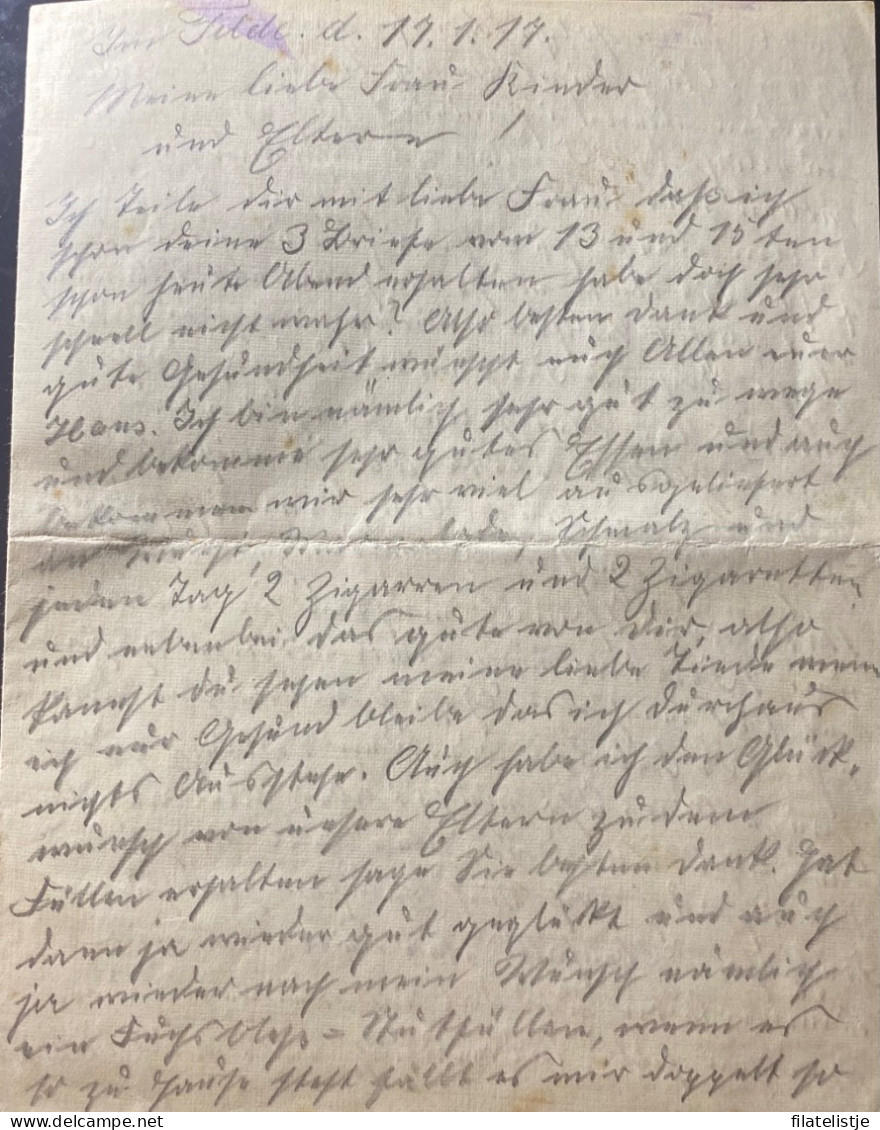 Im Felde. d. 17.1.17.
Meine liebe Frau Kinder
und Eltern!
Ich Teile dir mit liebe Frau daß ich
schon deine 3 Briefe vom 13 und 15 ten
schon heute Abend erhalten habe doch sehr
schnell nicht wahr? Also besten Dank und
gute Gesundheit wünscht euch Allen euer
Hans. Ich bin nämlich sehr gut zu wege
und bekomme sehr gutes Essen und auch
bekommen wir sehr viel ausgeliefert
an Wurst, Marmelade, Schmalz und
jeden Tag 2 Zigarren und 2 Zigaretten
und nebenbei das gute von dir, also
kannst du sehen meine liebe wenn
ich nur Gesund bleibe das ich durchaus
nichts Ausstehe. Auch habe ich den Glück-
wunsch von unsere Eltern zu dem
Füllen erhalten sage Sie besten Dank. Hat
dann ja wieder gut geglückt und auch
ja wieder nach mein Wunsch nämlich
ein Fuchsbleß-Stutfüllen, wenn es
so zu Hause steht fällt es mir doppelt so
filatelistje